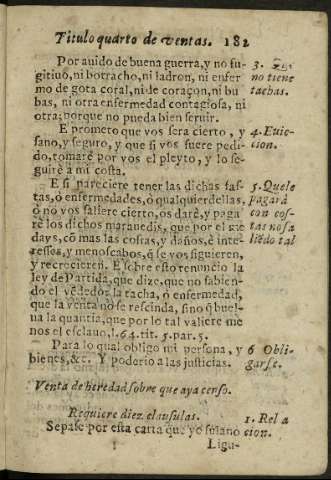 Titulo quarto de ventas. 182
Por auido de buena guerra, y no fu- 3. Que
gitiuo, ni borracho, ni ladron, ni enfer no tiene
mo de gota coral, ni de coraçon, ni bu tachas.
bas, ni otra enfermedad contagiosa, ni
otra; porque no pueda bien seruir.
E prometo que vos sera cierto, y 4. Euic-
sano, y seguro, y que si vos fuere pedi- cion.
do, tomarè por vos el pleyto, y lo se-
guirè a mi costa.
E si pareciere tener las dichas fal- 5. Que le
tas, ò enfermedades, ò qualquier dellas, pagarà
ò no vos saliere cierto, os darè, y paga con cos-
rè los dichos marauedis, que por el me tas no sa
days, cõ mas las costas, y daños, è inte- liẽdo tal
resses, y menoscabos, q̃ se vos siguieren,
y recrecieren. E sobre esto renuncio la
ley de Partida, que dize, que no sabien-
do el vẽdedor la tacha, ò enfermedad,
que la venta no se rescinda, sino q̃ buel-
ua la quantia, que por lo tal valiere me
nos el esclauo, l. 64. tit. 5. par. 5.
Para lo qual obligo mi persona, y 6 Obli-
bienes, &c. Y poderio a las justicias. garse.
Venta de heredad sobre que aya censo.
Requiere diez clausulas. 1. Rel a
Sepase por esta carta que yo fulano cion.
Ligu-